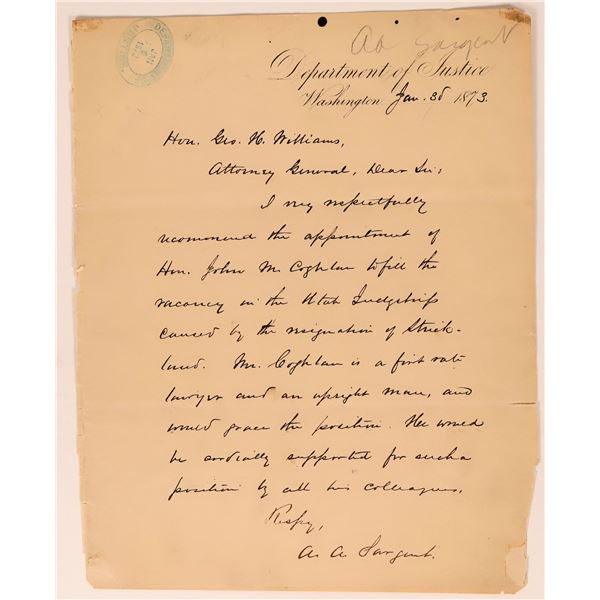 AA Sargent
Department of Justice
Washington Jan. 3d 1873.
Hon. Geo. H. Williams,
Attorney General, Dear Sir;
I very respectfully
recommend the appointment of
Hon. John M. Coghlan to fill the
vacancy in the Utah Judgeship
caused by the resignation of Strick-
land. Mr. Coghlan is a first rate
lawyer and an upright man, and
would grace the position. He would
be cordially supported for such a
position by all his colleagues.
Respy,
A. A. Sargent.